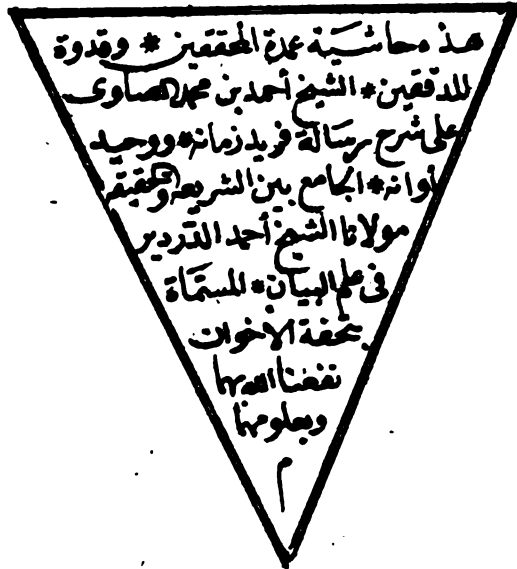 هذه حاشية عمدة المحققين * وقدوة
المدققين * الشيخ أحمد بن محمد الصاوى
على شرح رسالة فريد زمانه * ووحيد
أوانه * الجامع بين الشريعه والحقيقه
مولانا الشيخ أحمد الدردير
فى علم البيان * المسماة
بتحفة الأخوان
نفعنا الله بها
وبعلومهما
م